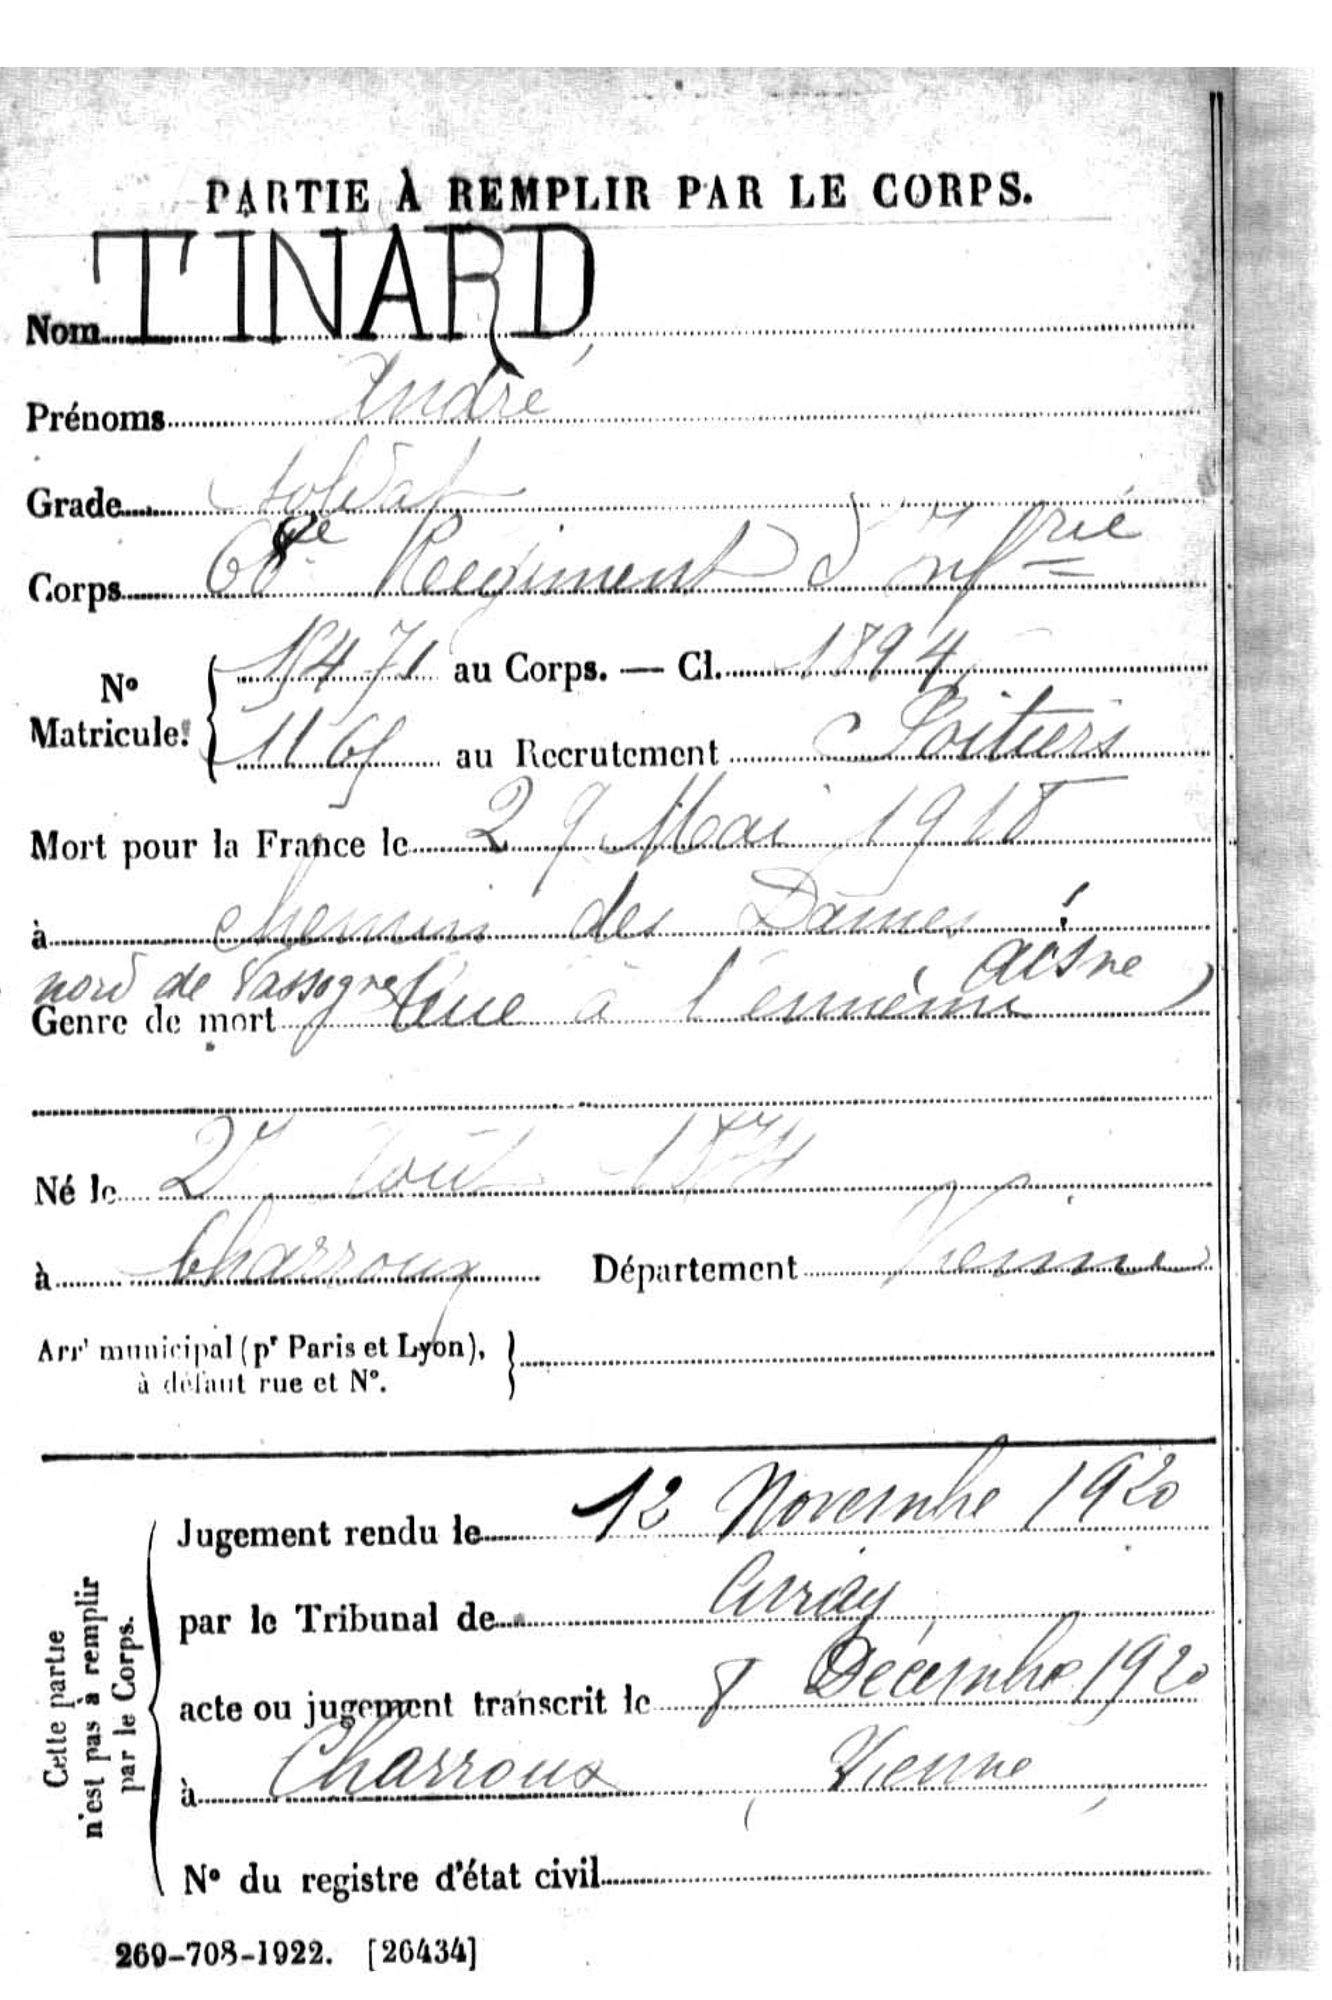 PARTIE À REMPLIR PAR LE CORPS.
Nom TINARD
Prénoms André
Grade Soldat
Corps 68e Régiment d'Inf rie
No Matricule. 15471 au Corps. — Cl. 1894
1165 au Recrutement Poitiers
Mort pour la France le 29 Mai 1918
à chemin des Dames
nord de Vassogne Aisne
Genre de mort tué à l'ennemi
Né le 27 Août 1874
à Charroux Département Vienne
Arrt municipal (pr Paris et Lyon),
à défaut rue et No.
Cette partie
n'est pas à remplir
par le Corps.
Jugement rendu le 12 Novembre 1920
par le Tribunal de Civray
acte ou jugement transcrit le 8 Décembre 1920
à Charroux (Vienne)
No du registre d'état civil
269-708-1922. [26434]